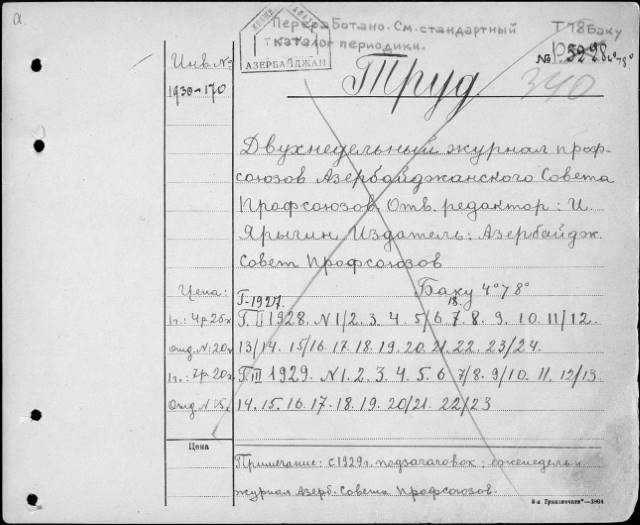 a.
Переработано. См. стандартный
каталог периодики.
АЗЕРБАЙДЖАН
Т 78 Баку
№ 5298
4°78°
340
Инв. №
1930-170
Труд.
Двухнедельный журнал проф-
союзов Азербайджанского Совета
Профсоюзов Отв. редактор: И.
Ярыгин Издатель: Азербайдж.
Совет Профсоюзов
Цена:
Баку 4°78°
Г. I-1927.
1г.: 4р 25к
Г. II 1928. N 1/2. 3. 4. 5/6 7. 18. 8. 9. 10. 11/12.
отд. N. 20к
13/14. 15/16. 17. 18. 19. 20. 21. 22. 23/24.
1г.: 4р 20к
Г. III 1929. N 1. 2. 3. 4. 5. 6 7/8. 9/10. 11. 12/13
Отд N 15к.
14. 15. 16. 17. 18. 19. 20/21. 22/23
Цена
Примечание: с 1929 г. подзаголовок: еженедельн
журнал Азерб. Совета Профсоюзов.